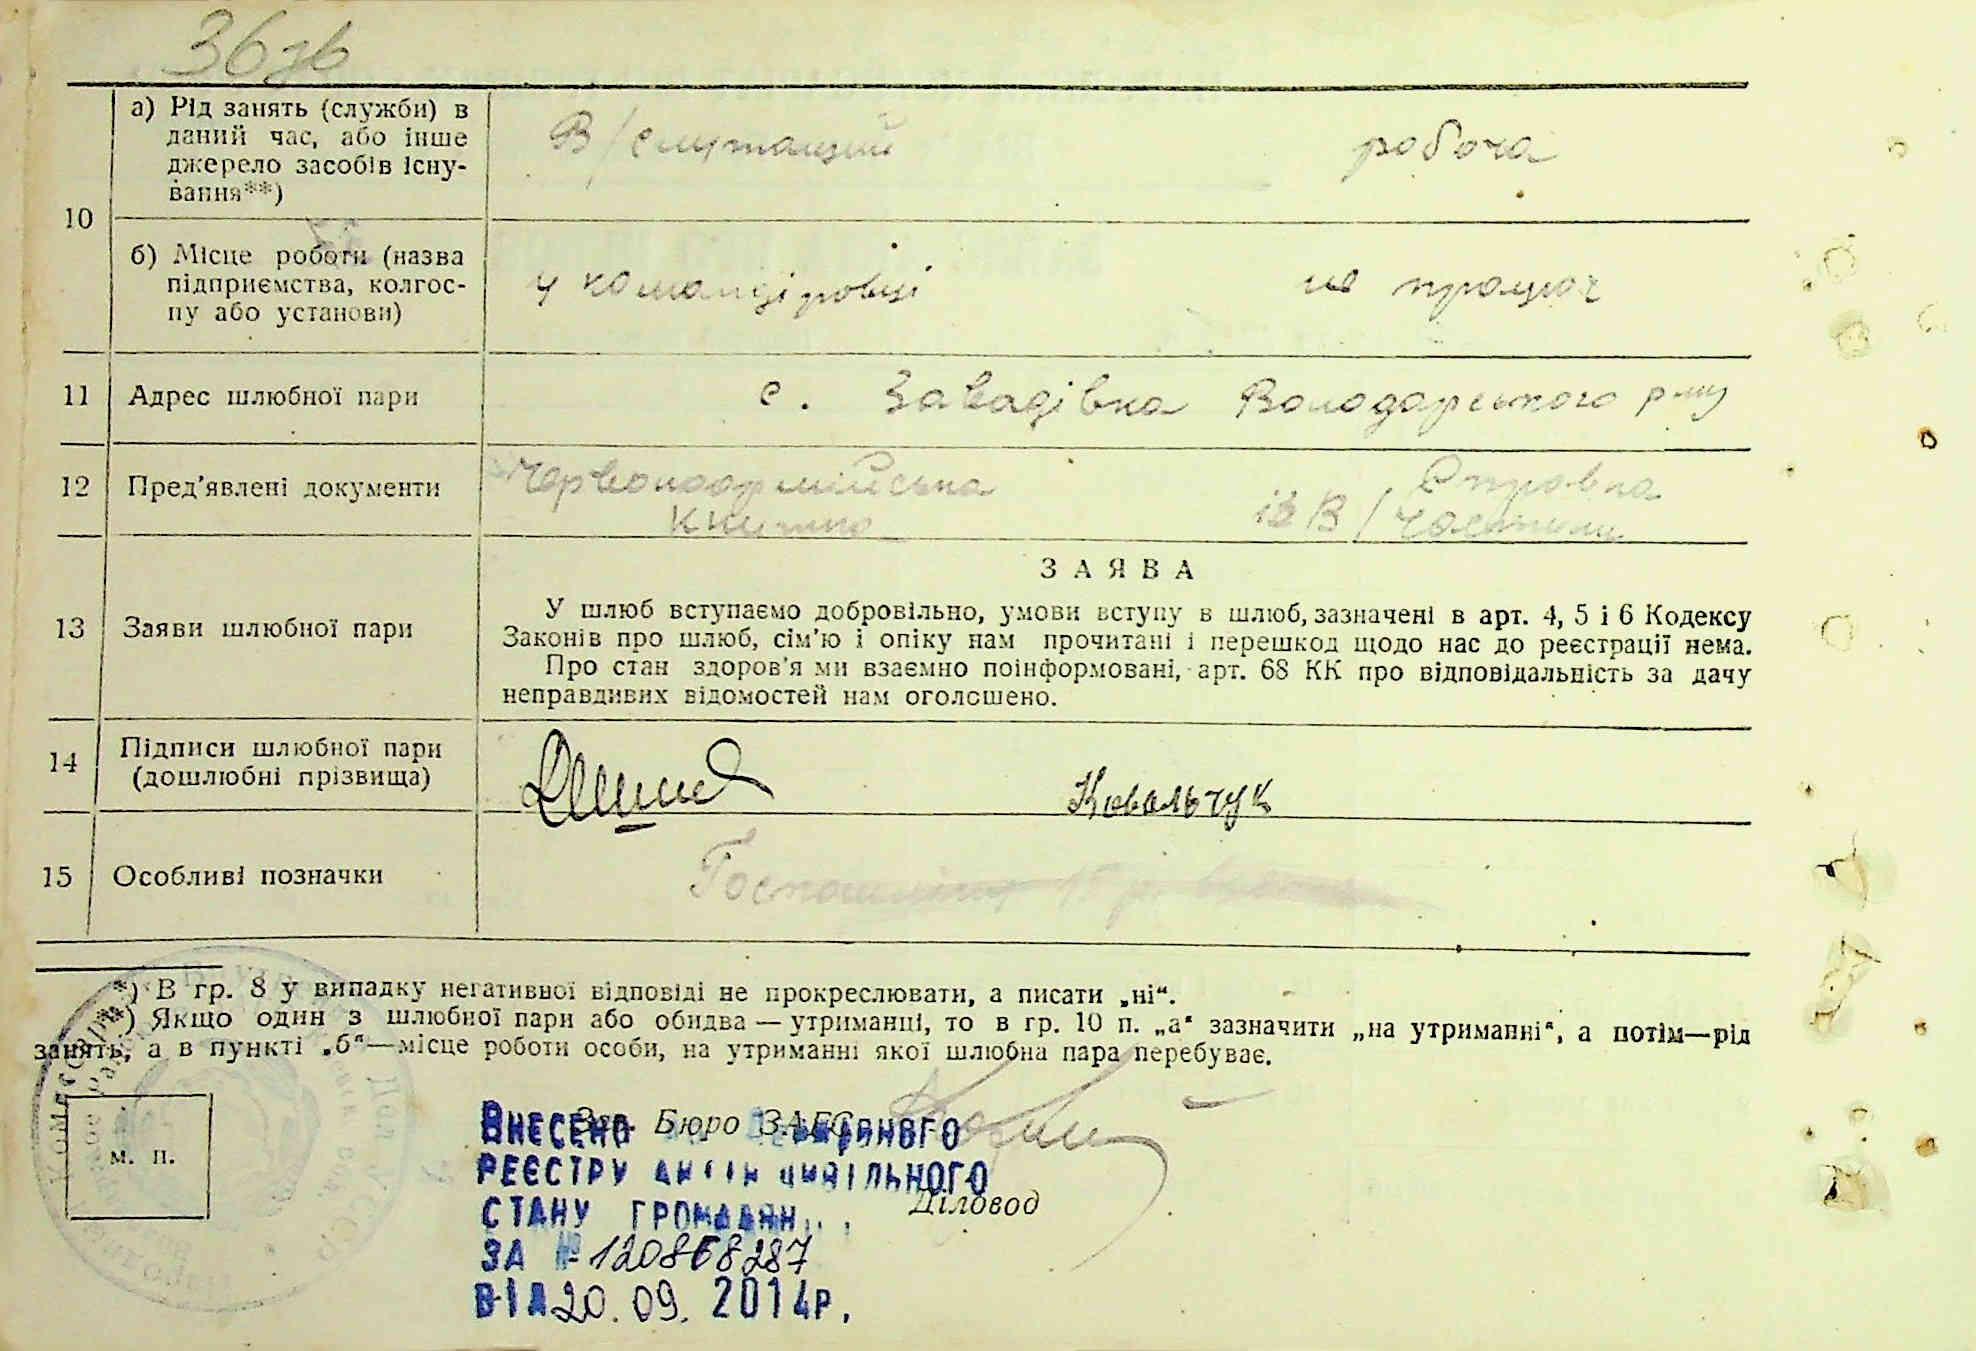 36зв
10
а) Рід занять (служби) в
даний час, або інше
джерело засобів існу-
вання**)
В/служащий
робоча
б) Місце роботи (назва
підприємства, колгос-
пу або установи)
у командіровці
не працює
11
Адрес шлюбної пари
с. Завадівка Володарського р-ну
12
Пред’явлені документи
Червоноармійська
книжка
Справка
із В/Частини
13
Заяви шлюбної пари
ЗАЯВА
У шлюб вступаємо добровільно, умови вступу в шлюб, зазначені в арт. 4, 5 і 6 Кодексу
Законів про шлюб, сім’ю і опіку нам прочитані і перешкод щодо нас до реєстрації нема.
Про стан здоров’я ми взаємно поінформовані, арт. 68 КК про відповідальність за дачу
неправдивих відомостей нам оголошено.
14
Підписи шлюбної пари
(дошлюбні прізвища)
Ковальчук
15
Особливі позначки
Госпошліну 15 р.
*) В гр. 8 у випадку негативної відповіді не прокреслювати, а писати „ні“.
**) Якщо один з шлюбної пари або обидва — утриманці, то в гр. 10 п. „а“ зазначити „на утриманні“, а потім—рід
занять, а в пункті „б“—місце роботи особи, на утриманні якої шлюбна пара перебуває.
м. п.
Зав. Бюро ЗАГС
Діловод
ВНЕСЕНО ДО ДЕРЖАВНОГО
РЕЄСТРУ АКТІВ ЦИВІЛЬНОГО
СТАНУ ГРОМАДЯН
ЗА № 120868287
ВІД 20.09. 2014р.